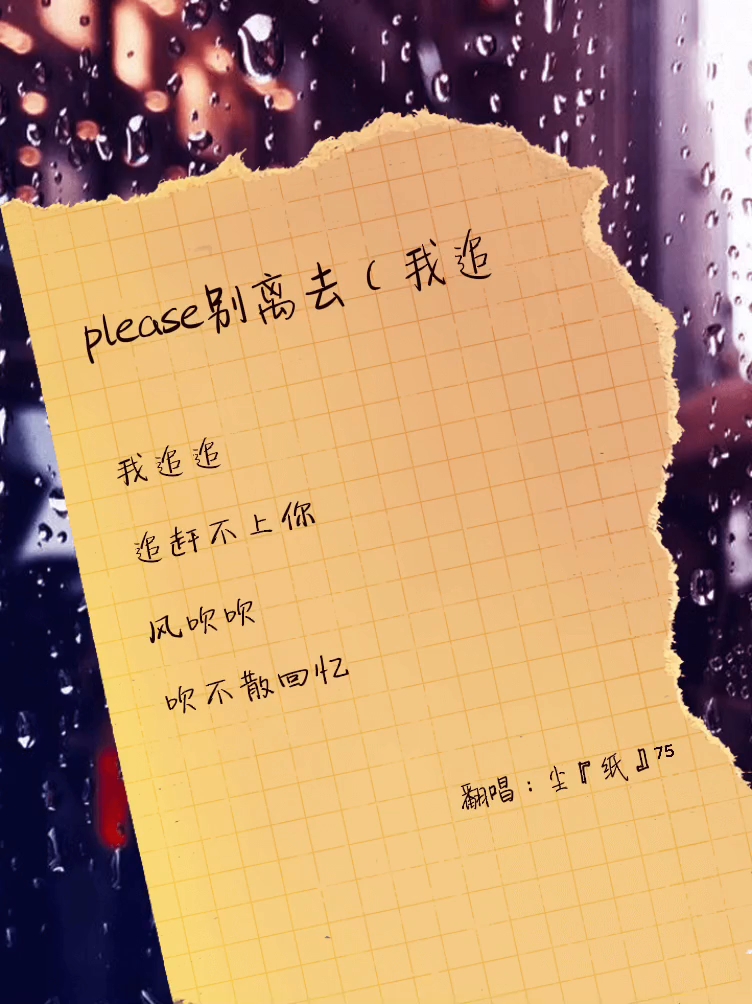 please别离去（我追
我追追
追赶不上你
风吹吹
吹不散回忆
翻唱：尘『纸』75